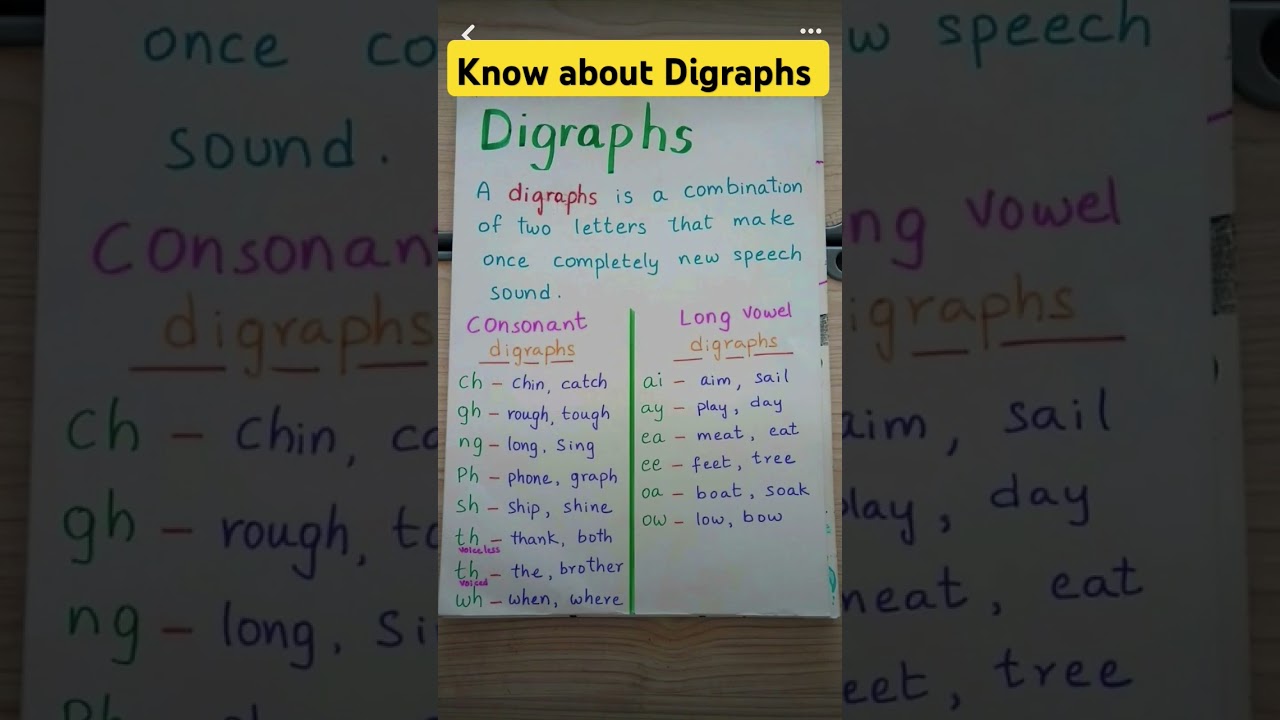 Know about Digraphs
Digraphs
A digraphs is a combination
of two letters that make
once completely new speech
sound.
Consonant
digraphs
ch - chin, catch
gh - rough, tough
ng - long, sing
Ph - phone, graph
sh - ship, shine
th - thank, both
voiceless
th - the, brother
voiced
wh - when, where
Long Vowel
digraphs
ai - aim, sail
ay - play, day
ea - meat, eat
ee - feet, tree
oa - boat, soak
ow - low, bow